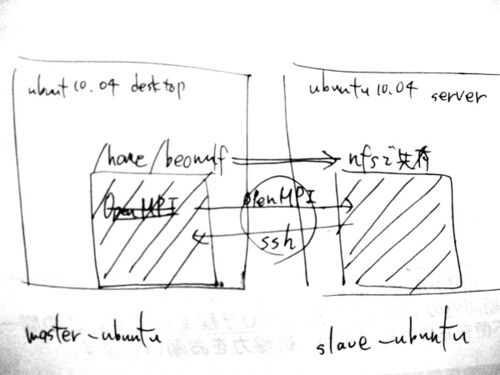 ubunt 10.04 desktop
ubuntu 10.04 server
/home/beowulf
nfsで共有
OpenMPI
OpenMPI
ssh
master-ubuntu
slave-ubuntu